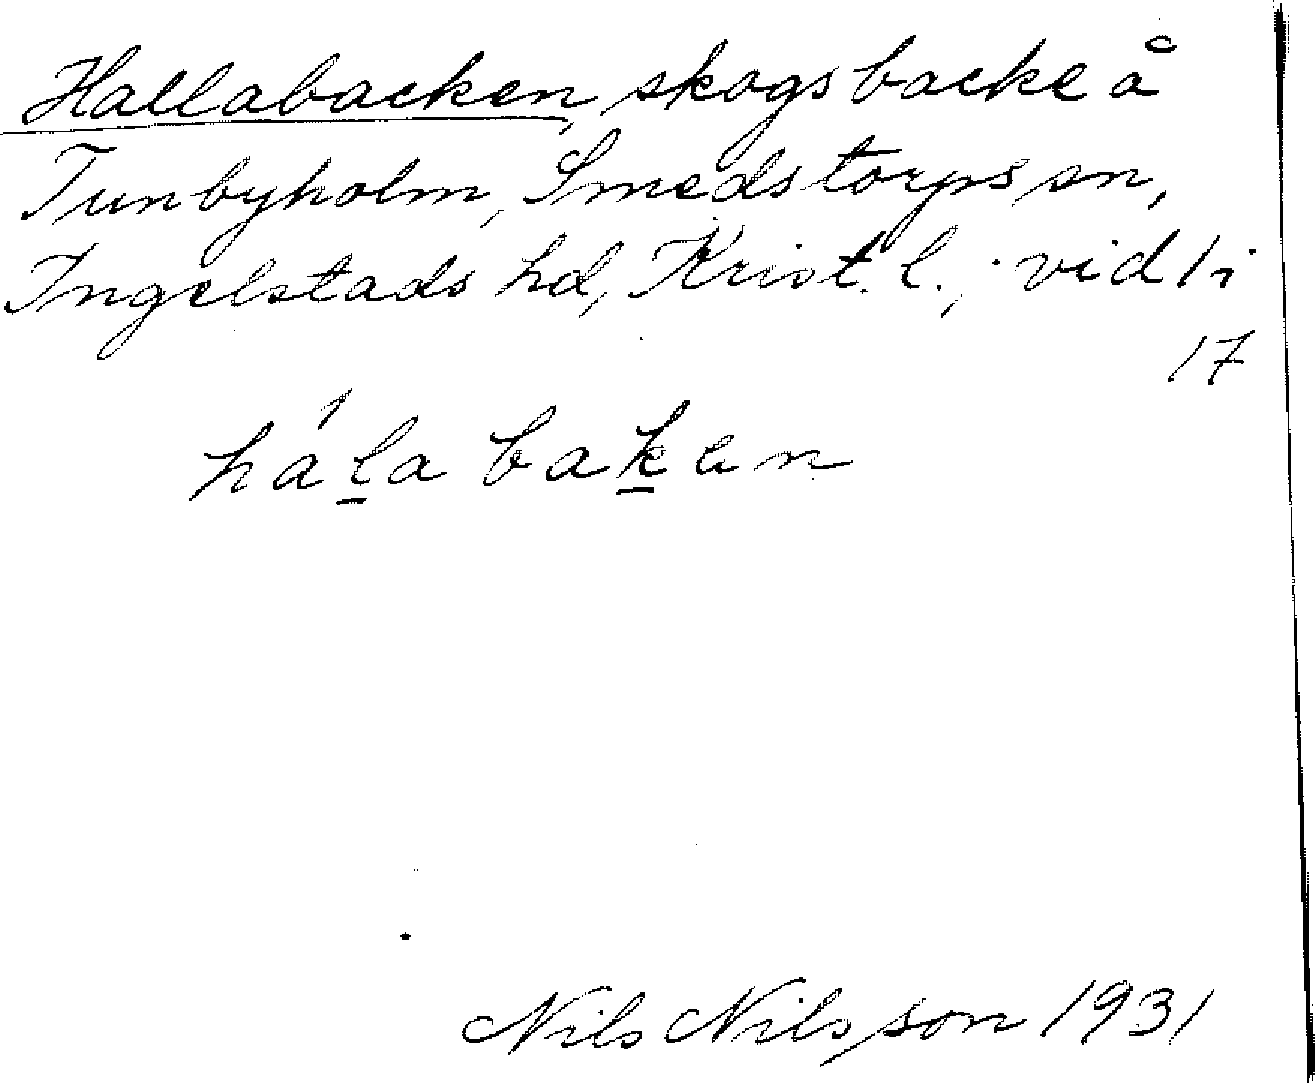 Hallabacken, skogsbacke å
Tunbyholm, Smedstorps sn,
Ingelstads hd, Krist. l.; vid 1i
17
hálabaken
Nils Nilsson 1931